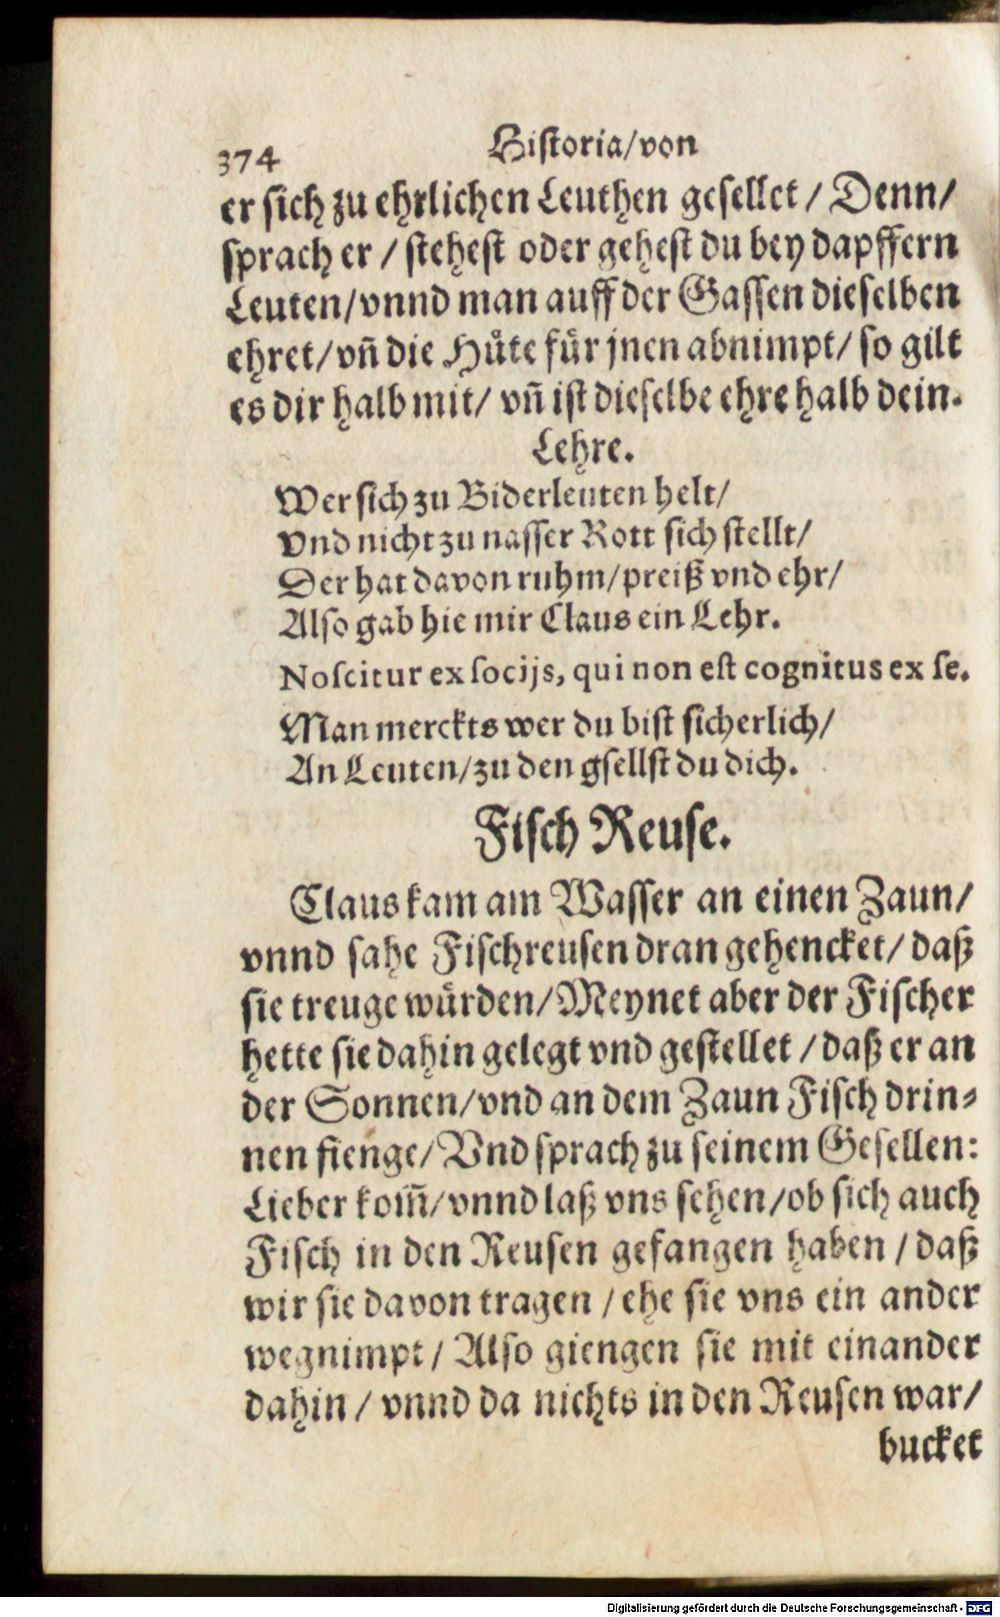 374
Historia/von
er sich zu ehrlichen Leuthen gesellet / Denn/
sprach er / stehest oder gehest du bey dapffern
Leuten/vnnd man auff der Gassen dieselben
ehret/vñ die Hüte für jnen abnimpt/ so gilt
es dir halb mit/ vñ ist dieselbe ehre halb dein.
Lehre.
Wer sich zu Biderleuten helt/
Vnd nicht zu nasser Rott sich stellt/
Der hat davon ruhm/preiß vnd ehr/
Also gab hie mir Claus ein Lehr.
Noscitur ex socijs, qui non est cognitus ex se.
Man merckts wer du bist sicherlich/
An Leuten/zu den gsellst du dich.
Fisch Reuse.
Claus kam am Wasser an einen Zaun/
vnnd sahe Fischreusen dran gehencket/ daß
sie treuge würden/Meynet aber der Fischer
hette sie dahin gelegt vnd gestellet / daß er an
der Sonnen/vnd an dem Zaun Fisch drin⸗
nen fienge/Vnd sprach zu seinem Gesellen:
Lieber kom̃/vnnd laß vns sehen/ob sich auch
Fisch in den Reusen gefangen haben / daß
wir sie davon tragen / ehe sie vns ein ander
wegnimpt/ Also giengen sie mit einander
dahin / vnnd da nichts in den Reusen war/
bucket
Digitalisierung gefördert durch die Deutsche Forschungsgemeinschaft - DFG